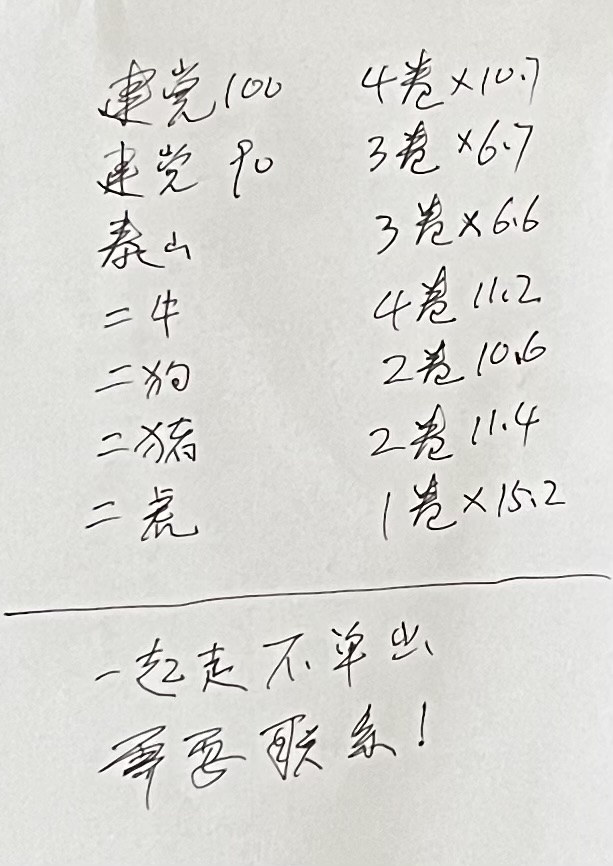 建党100 4卷×10.7
建党90 3卷×6.7
泰山 3卷×6.6
二牛 4卷11.2
二狗 2卷10.6
二猪 2卷11.4
二虎 1卷×15.2
一起走不单出
需要联系!